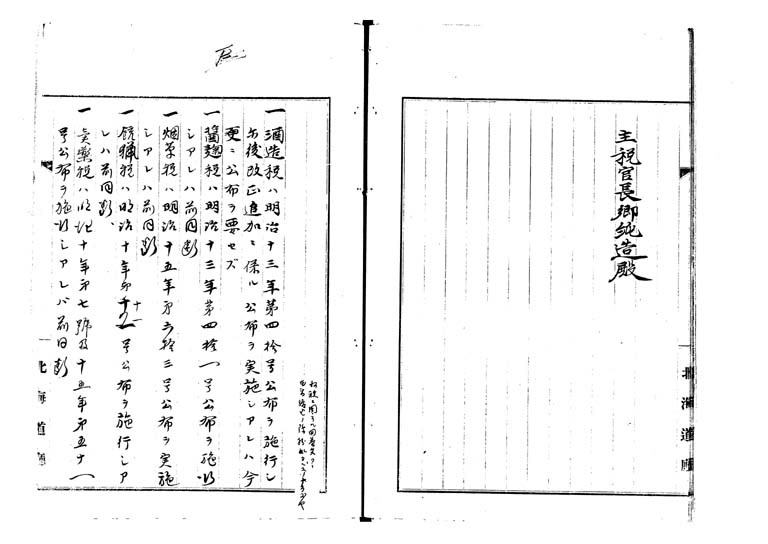 主税官長郷純造殿
北海道廳
一酒造税ハ明治十三年第四拾号公布ヲ施行シ
爾後改正追加ニ係ル公布ヲ実施シアレハ今
更ニ公布ヲ要セズ
一醤麹税ハ明治十三年第四拾一号公布ヲ施行
シアレハ前同断
一烟草税ハ明治十五年第六拾三号公布ヲ実施
シアレハ前同断
一銃猟税ハ明治十年第十一号公布ヲ施行シア
レハ前同断
一賣藥税ハ明治十年第七號及十五年第五十一
号公布ヲ施行シアレバ前同断
北海道廳